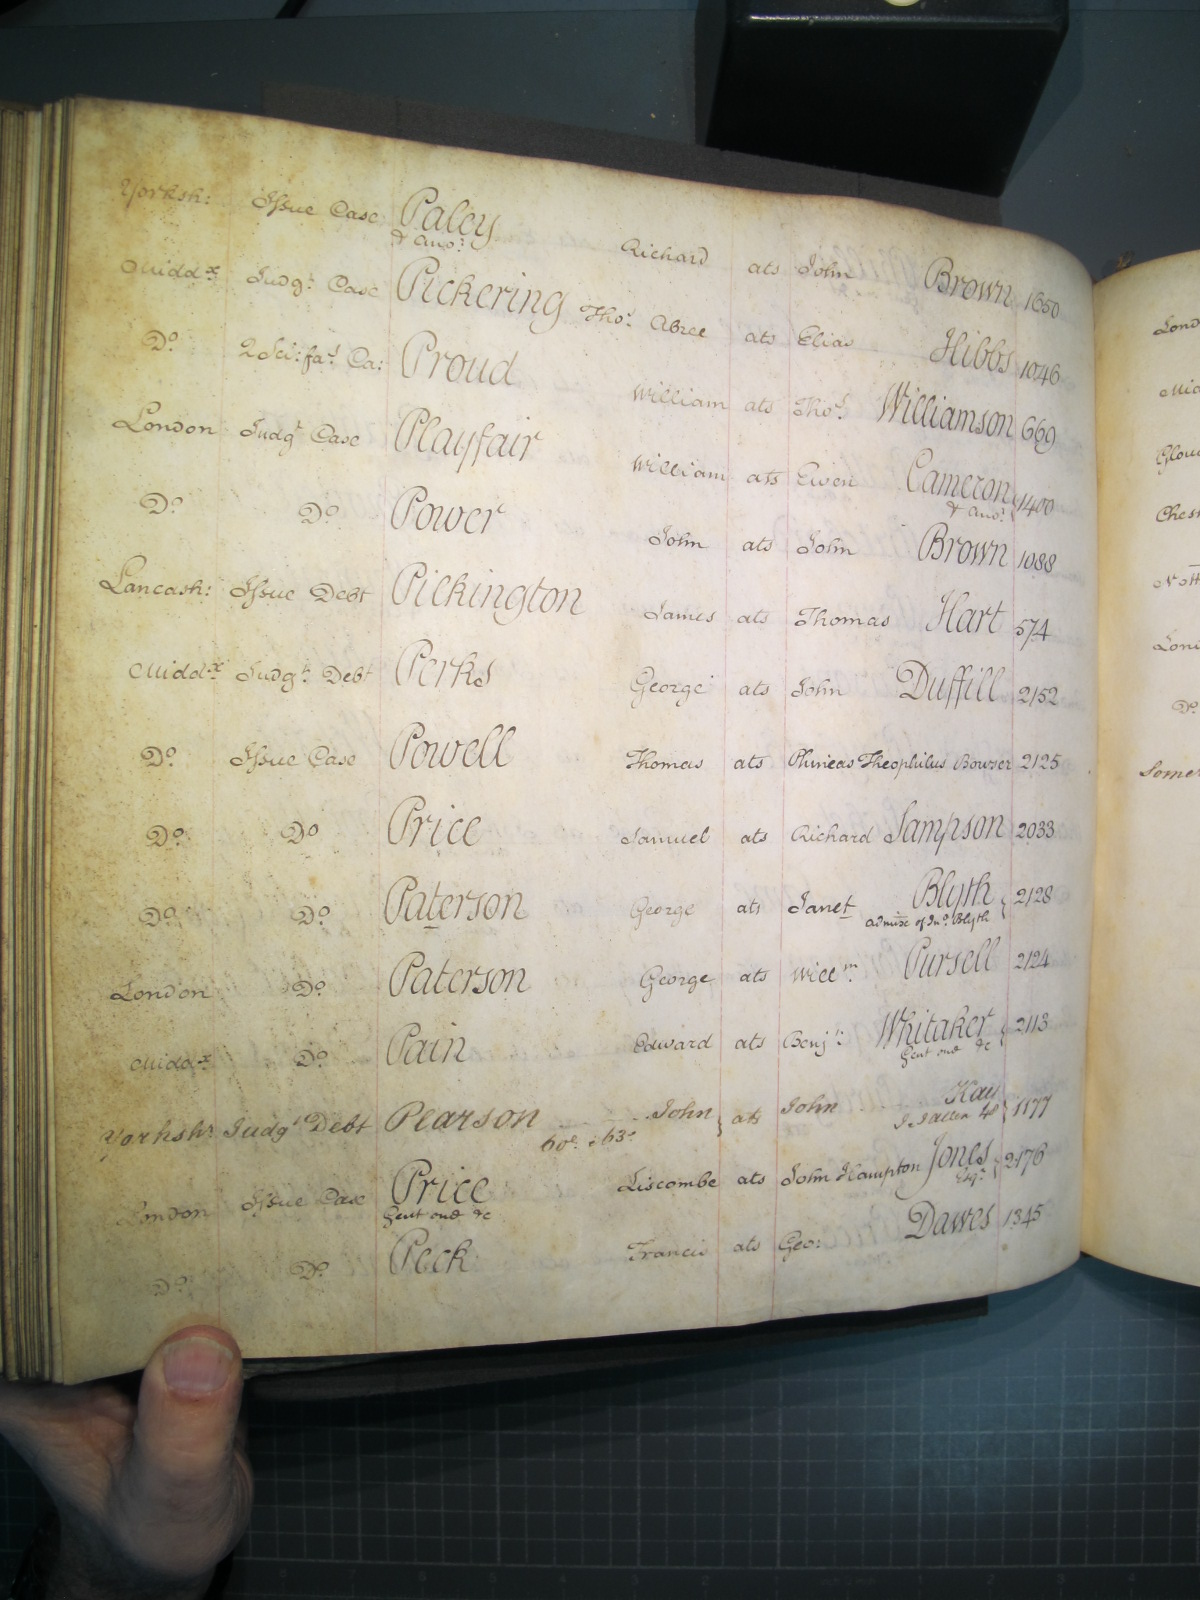 Yorksh: Issue Case Paley Richard ats John Brown 1650
& Ano.r
Midd.x Judg.t Case Pickering Tho.s Abree ats Elias Hibbs 1046
D.o 2 Sci: fa.s Ca: Proud William ats Tho.s Williamson 669
London Judg.t Case Playfair William ats Ewen Cameron 1400
& Ano.r
D.o D.o Power John ats John Brown 1088
Lancash: Issue Debt Pilkington James ats Thomas Hart 574
Midd.x Judg.t Debt Perks George ats John Duffill 2152
D.o Issue Case Powell Thomas ats Phineas Theophilus Bowser 2125
D.o D.o Price Samuel ats Richard Sampson 2033
D.o D.o Paterson George ats Janet Blyth 2128
admix of Jn.o Blyth
London D.o Paterson George ats Will.m Pursell 2124
Midd.x D.o Pain Edward ats Benj.n Whitaker 2113
Gent one &c
Yorksh.r Judg.t Debt Pearson John ats John Kay 1177
60.s : 63.s
London Issue Case Price Liscombe ats John Hampton Jones 2176
Gent one &c Esq.r
D.o D.o Peck Francis ats Geo: Dawes 1345
Lond
Mid
Glou
Chest
Nott
Lond
D.o
Somer